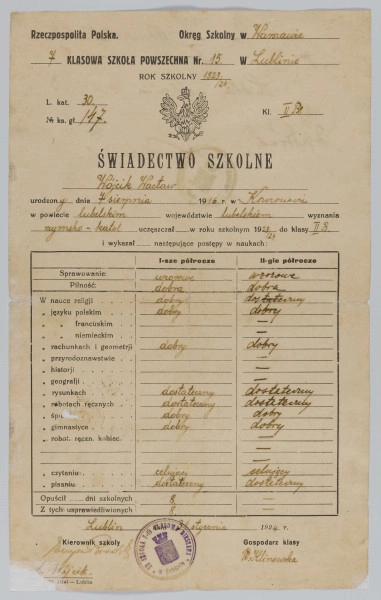 Rzeczpospolita Polska. Okręg Szkolny w Warszawie
7 KLASOWA SZKOŁA POWSZECHNA Nr. 15 w Lublinie
ROK SZKOLNY 1923/24
L. kat. 30
№ ks. gł. 147
Kl. II B
ŚWIADECTWO SZKOLNE
Wójcik Wacław
urodzony dnia 7 sierpnia 1916 r. w
w powiecie lubelskim województwie lubelskiem wyznania
rzymsko-katol uczęszczał w roku szkolnym 1923/24 do klasy II B
i wykazał następujące postępy w naukach:
I-sze półrocze II-gie półrocze
Sprawowanie: wzorowe wzorowe
Pilność: dobra dobra
W nauce religji dobry dostateczny
„ języku polskim dobry dobry
„ „ francuskim —
„ „ niemieckim —
„ rachunkach i geometrji dobry dobry
„ przyrodoznawstwie —
„ historji —
„ geografji —
„ rysunkach dostateczny dostateczny
„ robotach ręcznych dostateczny dostateczny
„ dobry dobry
„ gimnastyce dobry dobry
„ robot. ręczn. kobiec. —
„ czytaniu celujący celujący
„ pisaniu dostateczny dostateczny
Opuścił dni szkolnych 8 —
Z tych usprawiedliwionych 8 —
Lublin stycznia 1924 r.
Kierownik szkoły Gospodarz klasy
Wójcik
Lublin